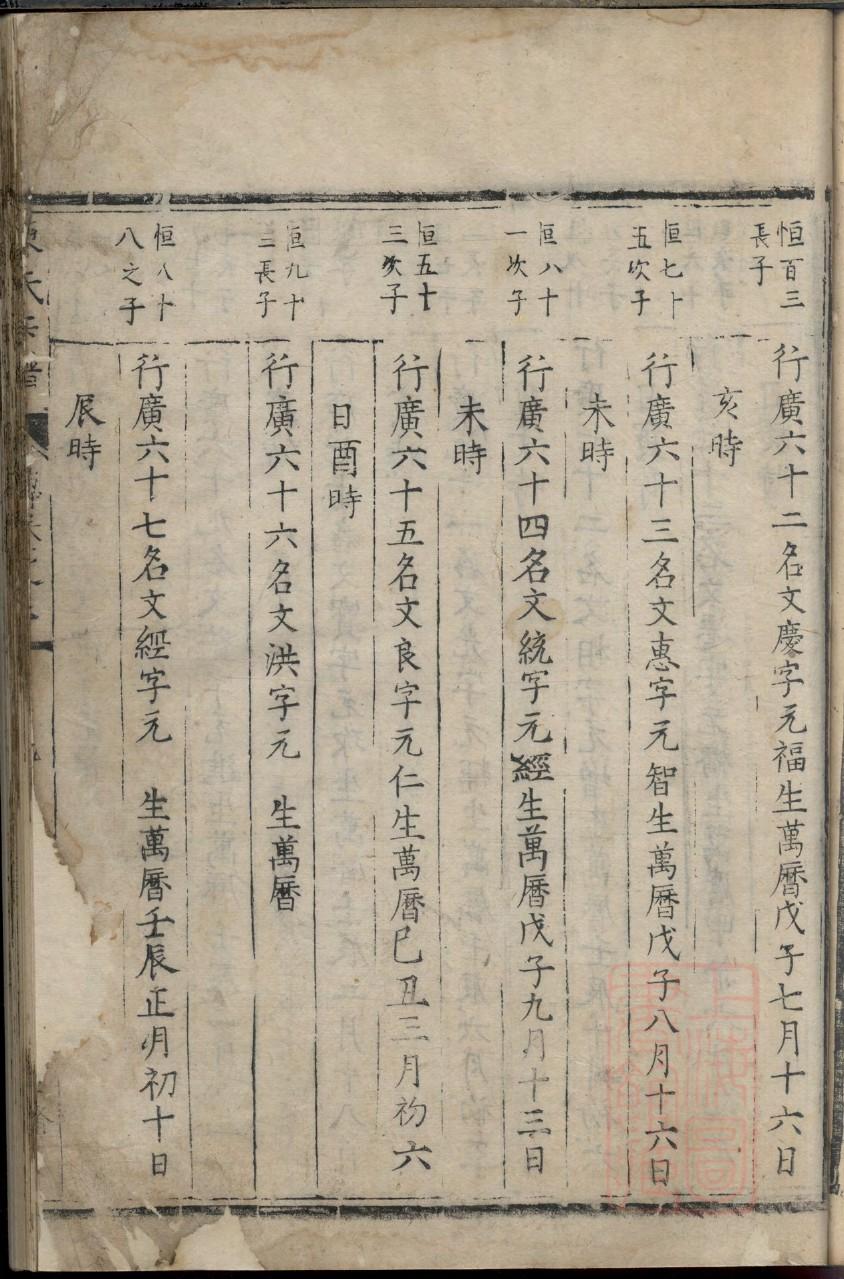 恒百三
長子
行廣六十二名文慶字元福生萬曆戊子七月十六日
亥時
恒七十
五次子
行廣六十三名文惠字元智生萬曆戊子八月十六日
未時
恒八十
一次子
行廣六十四名文統字元經生萬曆戊子九月十三日
未時
恒五十
三次子
行廣六十五名文良字元仁生萬曆己丑三月初六
日酉時
恒九十
三長子
行廣六十六名文洪字元 生萬曆
恒八十
八之子
行廣六十七名文經字元 生萬曆壬辰正月初十日
辰時
氏
譜